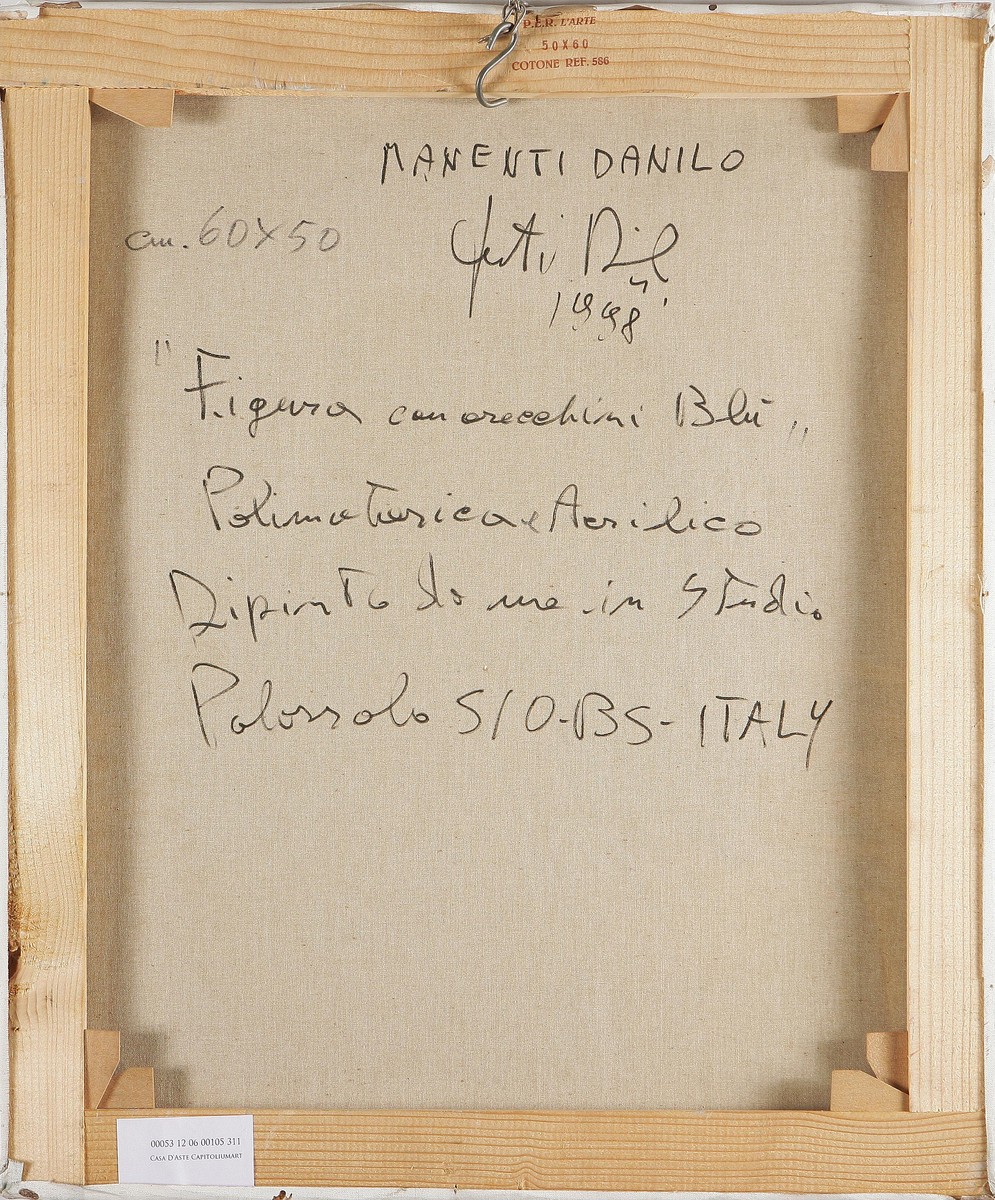 P.E.R. L'ARTE
50X60
COTONE REF. 586
MANENTI DANILO
cm. 60X50
1998
"Figura con orecchini Blù"
Polimaterica e Acrilico
Dipinto da me in Studio
Palazzolo S/O-BS- ITALY
00053 12 06 00105 311
CASA D'ASTE CAPITOLIUMART